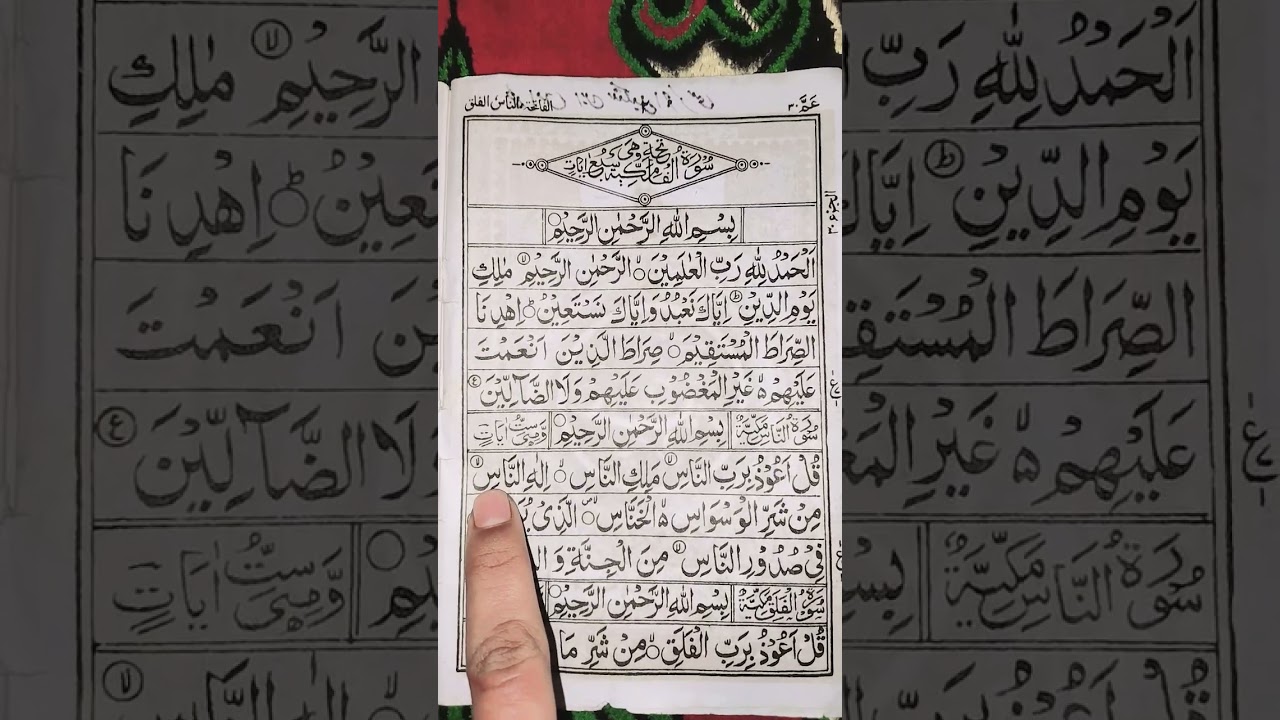 عَمَّ ٣٠
الفاتحة والناس الفلق
سُوْرَةُ الْفَاتِحَةِ مَكِّيَّةٌ وَّهِيَ سَبْعُ اٰيَاتٍ
بِسْمِ اللّٰهِ الرَّحْمٰنِ الرَّحِيْمِ
اَلْحَمْدُ لِلّٰهِ رَبِّ الْعٰلَمِيْنَ ۙ الرَّحْمٰنِ الرَّحِيْمِ ۙ مٰلِكِ
يَوْمِ الدِّيْنِ ؕ اِيَّاكَ نَعْبُدُ وَاِيَّاكَ نَسْتَعِيْنُ ؕ اِهْدِنَا
الصِّرَاطَ الْمُسْتَقِيْمَ ۙ صِرَاطَ الَّذِيْنَ اَنْعَمْتَ
عَلَيْهِمْ ۙ غَيْرِ الْمَغْضُوْبِ عَلَيْهِمْ وَلَا الضَّآلِّيْنَ
سُوْرَةُ النَّاسِ مَكِّيَّةٌ بِسْمِ اللّٰهِ الرَّحْمٰنِ الرَّحِيْمِ وَّهِيَ سِتُّ اٰيَاتٍ
قُلْ اَعُوْذُ بِرَبِّ النَّاسِ ۙ مَلِكِ النَّاسِ ۙ اِلٰهِ النَّاسِ ۙ
مِنْ شَرِّ الْوَسْوَاسِ ۙ الْخَنَّاسِ ۙ الَّذِيْ
فِيْ صُدُوْرِ النَّاسِ ۙ مِنَ الْجِنَّةِ وَ
سُوْرَةُ الْفَلَقِ مَكِّيَّةٌ بِسْمِ اللّٰهِ الرَّحْمٰنِ الرَّحِيْمِ
قُلْ اَعُوْذُ بِرَبِّ الْفَلَقِ ۙ مِنْ شَرِّ مَا